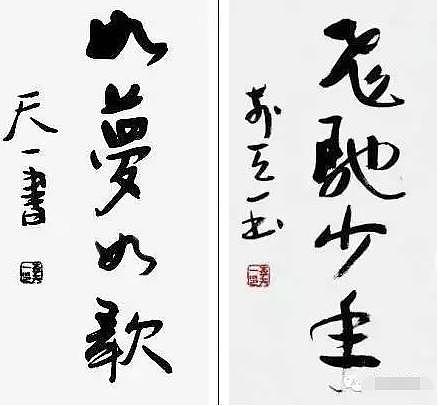 如夢如歌
天一書
馳少年
天一书